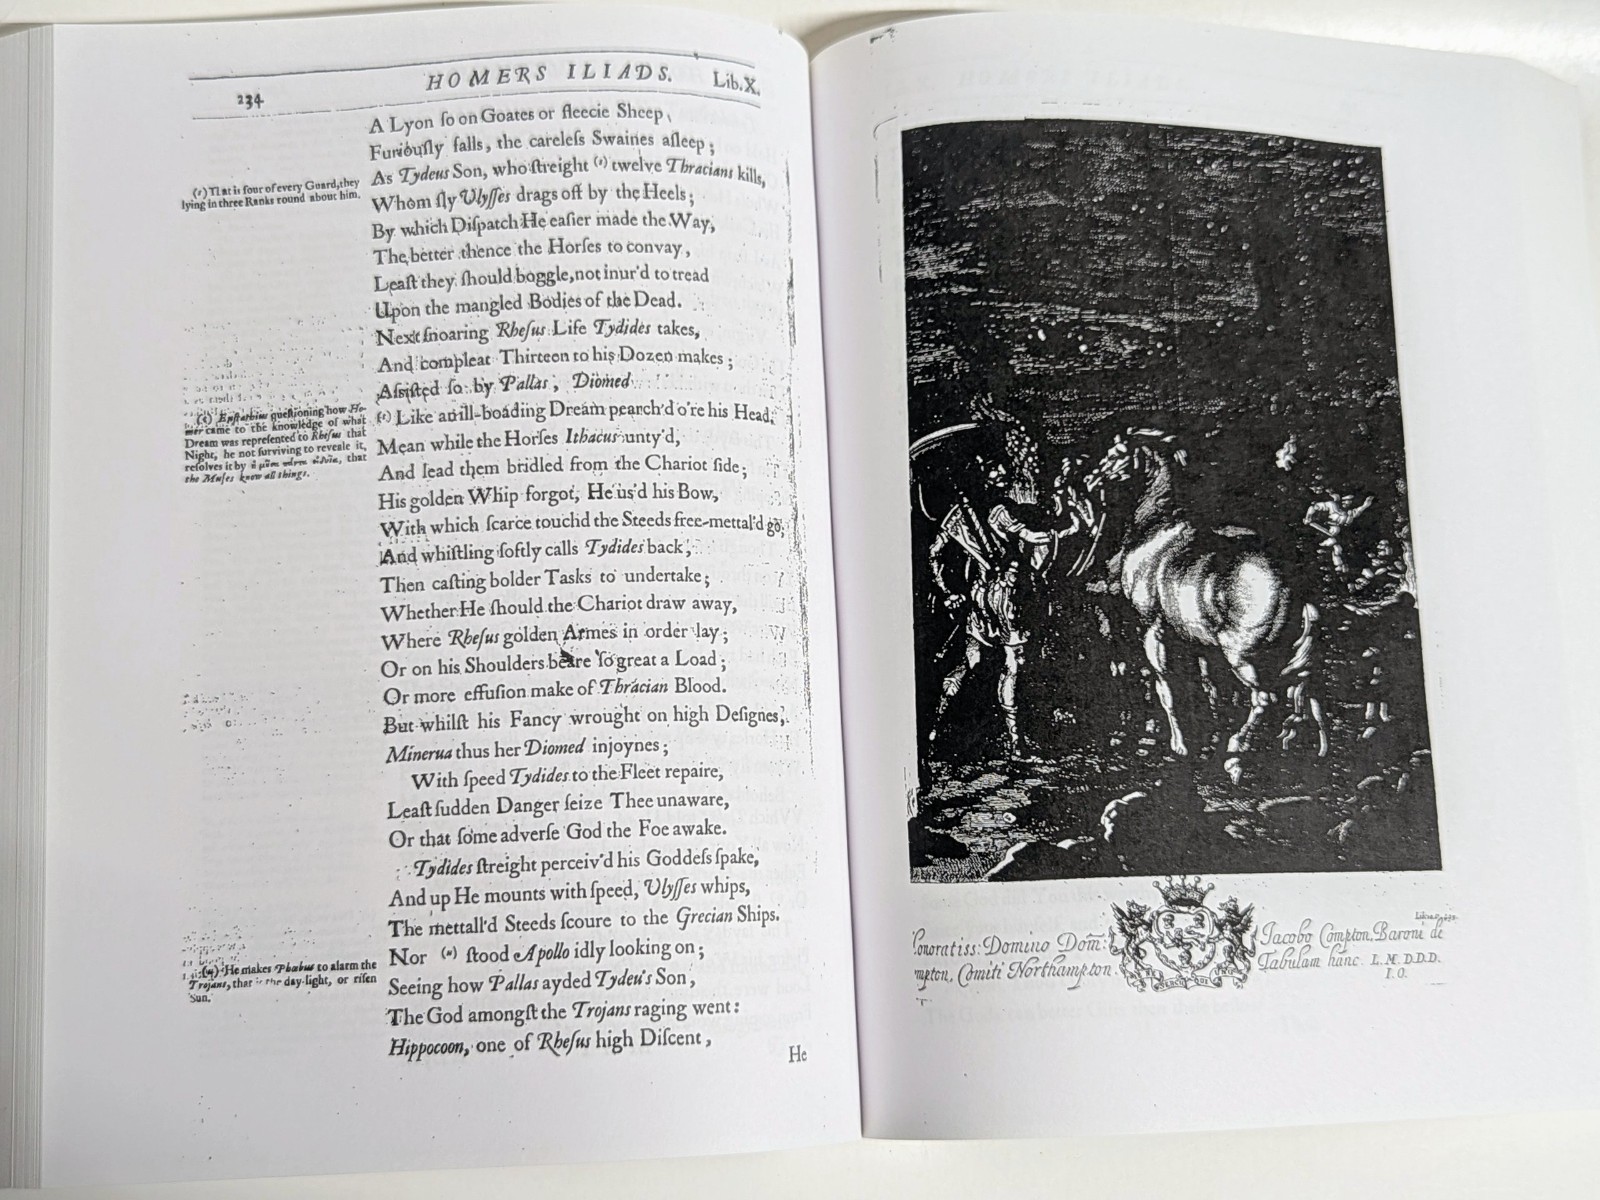 234
HOMERS ILIADS.
Lib.X.
A Lyon ſo on Goates or fleecie Sheep,
Furiouſly falls, the careleſs Swaines aſleep;
As Tydeus Son, who ſtreight (ſ) twelve Thracians kills,
Whom ſly Ulyſſes drags off by the Heels;
By which Diſpatch He eaſier made the Way,
The better thence the Horſes to convay,
Leaſt they ſhould boggle, not inur'd to tread
Upon the mangled Bodies of the Dead.
Next ſnoaring Rheſus Life Tydides takes,
And compleat Thirteen to his Dozen makes;
Aſsiſted ſo by Pallas, Diomed
(t) Like an ill-boading Dream pearch'd o're his Head;
Mean while the Horſes Ithacus unty'd,
And lead them bridled from the Chariot ſide;
His golden Whip forgot, He us'd his Bow,
With which ſcarce touchd the Steeds free-mettal'd go,
And whiſtling ſoftly calls Tydides back,
Then caſting bolder Tasks to undertake;
Whether He ſhould the Chariot draw away,
Where Rheſus golden Armes in order lay;
Or on his Shoulders beare ſo great a Load;
Or more effuſion make of Thracian Blood.
But whilſt his Fancy wrought on high Deſignes,
Minerua thus her Diomed injoynes;
With ſpeed Tydides to the Fleet repaire,
Leaſt ſudden Danger ſeize Thee unaware,
Or that ſome adverſe God the Foe awake.
Tydides ſtreight perceiv'd his Goddeſs ſpake,
And up He mounts with ſpeed, Ulyſſes whips,
The mettall'd Steeds ſcoure to the Grecian Ships.
Nor (u) ſtood Apollo idly looking on;
Seeing how Pallas ayded Tydeu's Son,
The God amongſt the Trojans raging went:
Hippocoon, one of Rheſus high Diſcent,
He
(ſ) That is four of every Guard, they
lying in three Ranks round about him.
(t) Euſtathius queſtioning how Ho-
mer came to the knowledge of what
Dream was repreſented to Rheſus that
Night, he not ſurviving to reveale it,
reſolves it by that
the Muſes know all things.
(u) He makes Phœbus to alarm the
Trojans, that is the day-light, or riſen
Sun.
onoratiss: Domino Dom:
Iacobo Compton, Baroni de
mpton, Comiti Northampton
Tabulam hanc. L. M. D.D.D.
I. O.